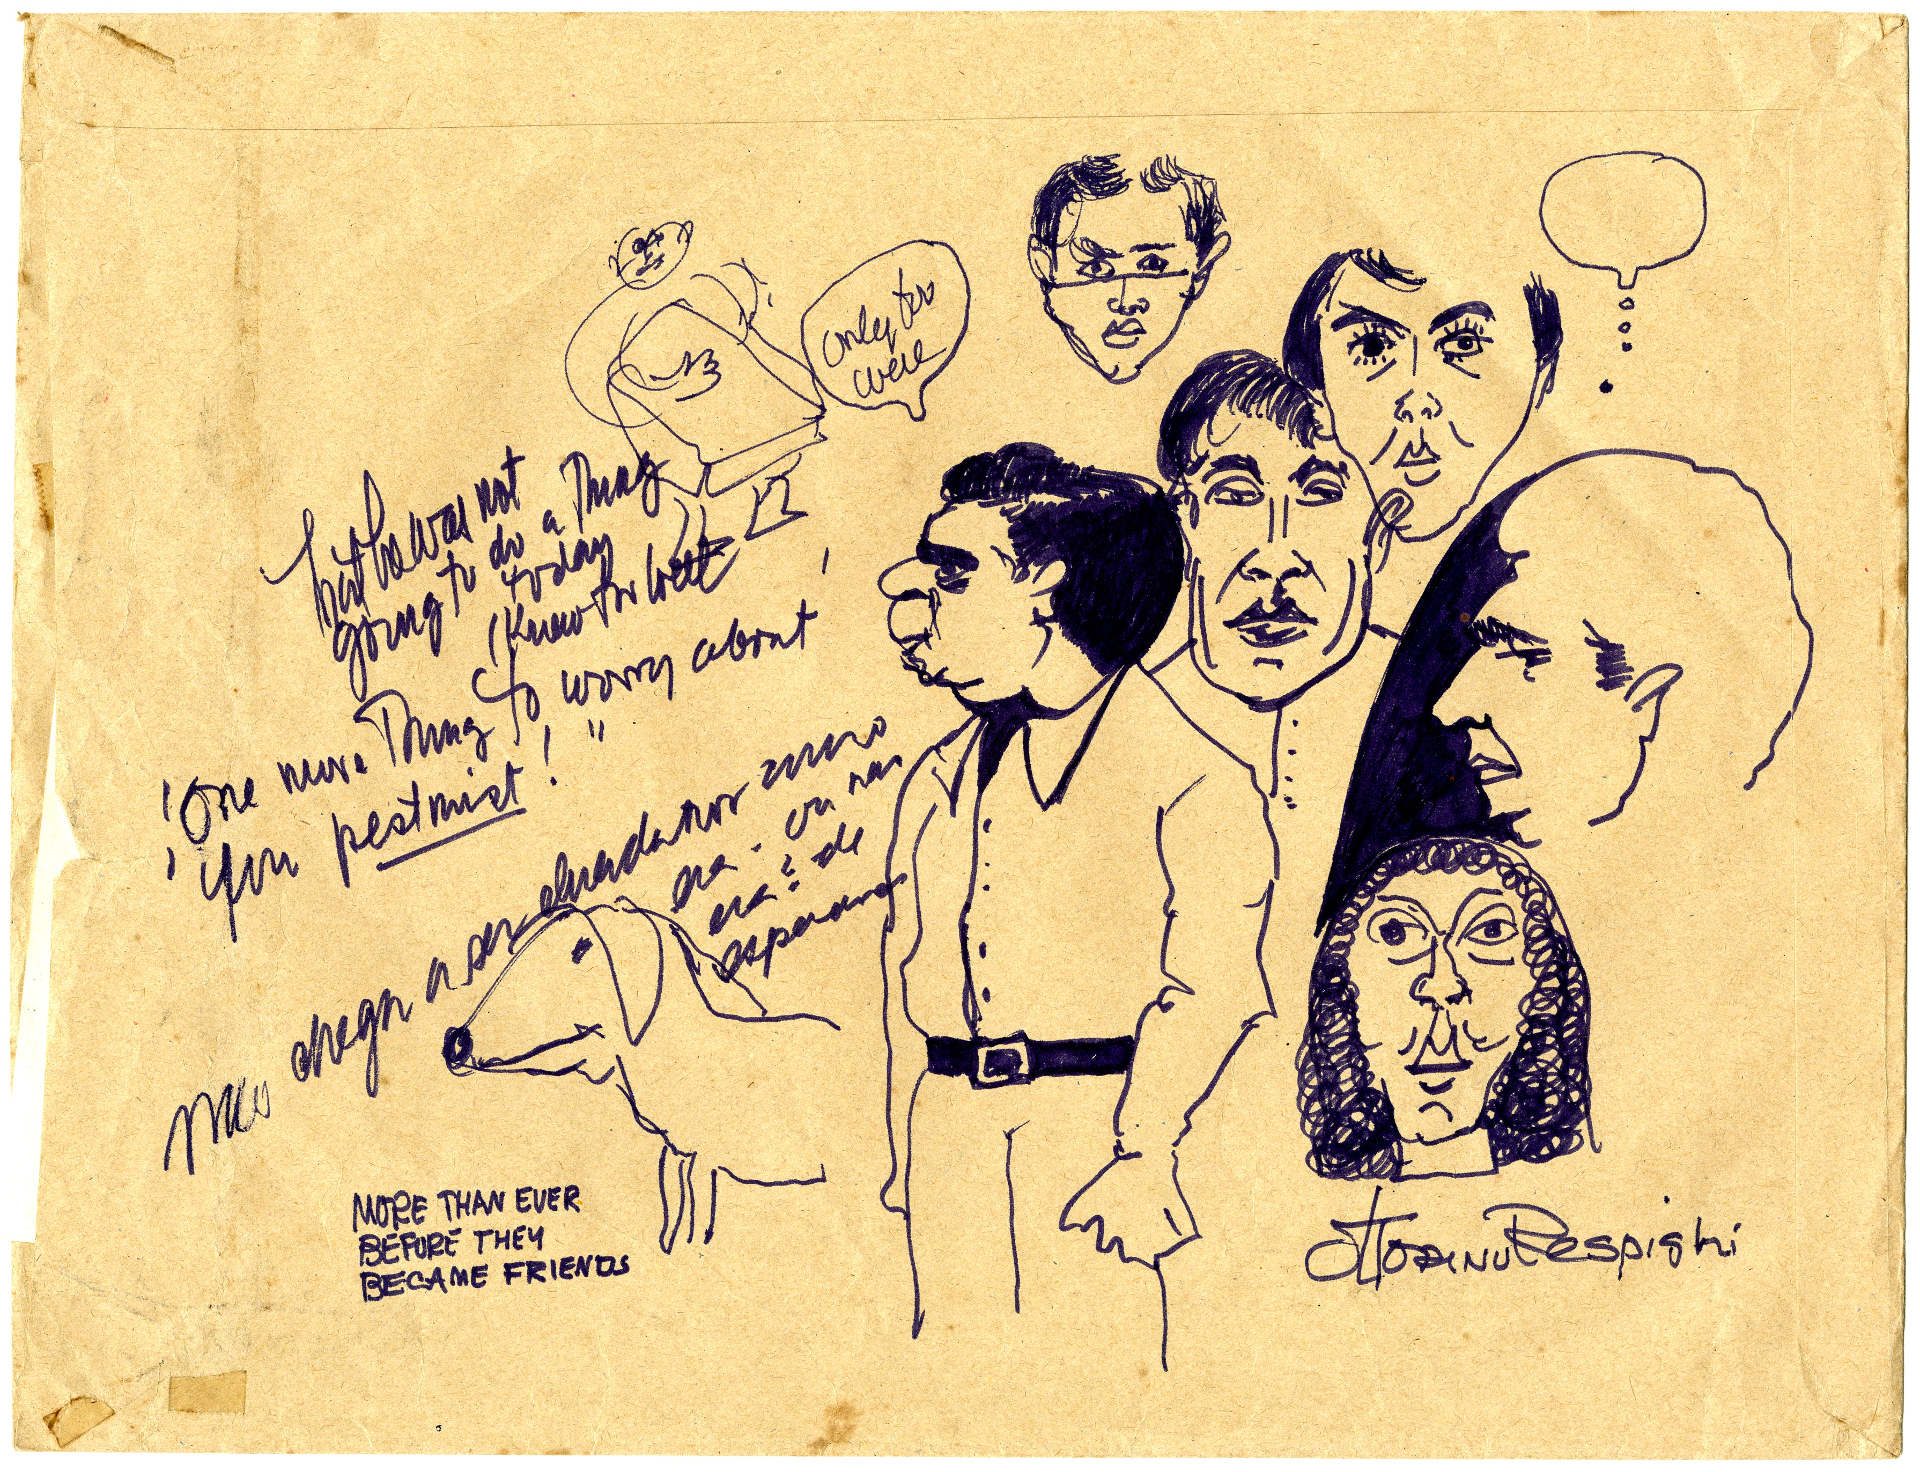 only too
well
that he was not
going to do a thing
today
(Know too well
"One more Thing to worry about!
you pestmist!"
não chega a ser
era. ou não
era? de
esperança
MORE THAN EVER
BEFORE THEY
BECAME FRIENDS
Ottorino Respighi